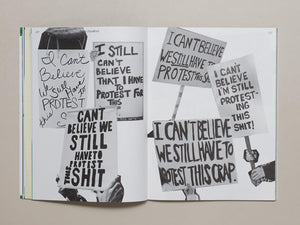 I Can't
Believe
We Still Have
to
PROTEST
this
I STILL
CAN'T
BELIEVE
THAT I HAVE
TO
PROTEST FOR
THIS
CANT
BELIEVE WE
STILL
HAVE TO
PROTEST
THIS
SHIT
I CAN'T BELIEVE
WE STILL HAVE TO
PROTEST THIS CRAP
I CAN'T
BELIEVE
I'M STILL
PROTEST-
ING
THIS
SHIT!
I CAN'T BELIEVE
WE STILL HAVE TO
PROTEST THIS CRAP.